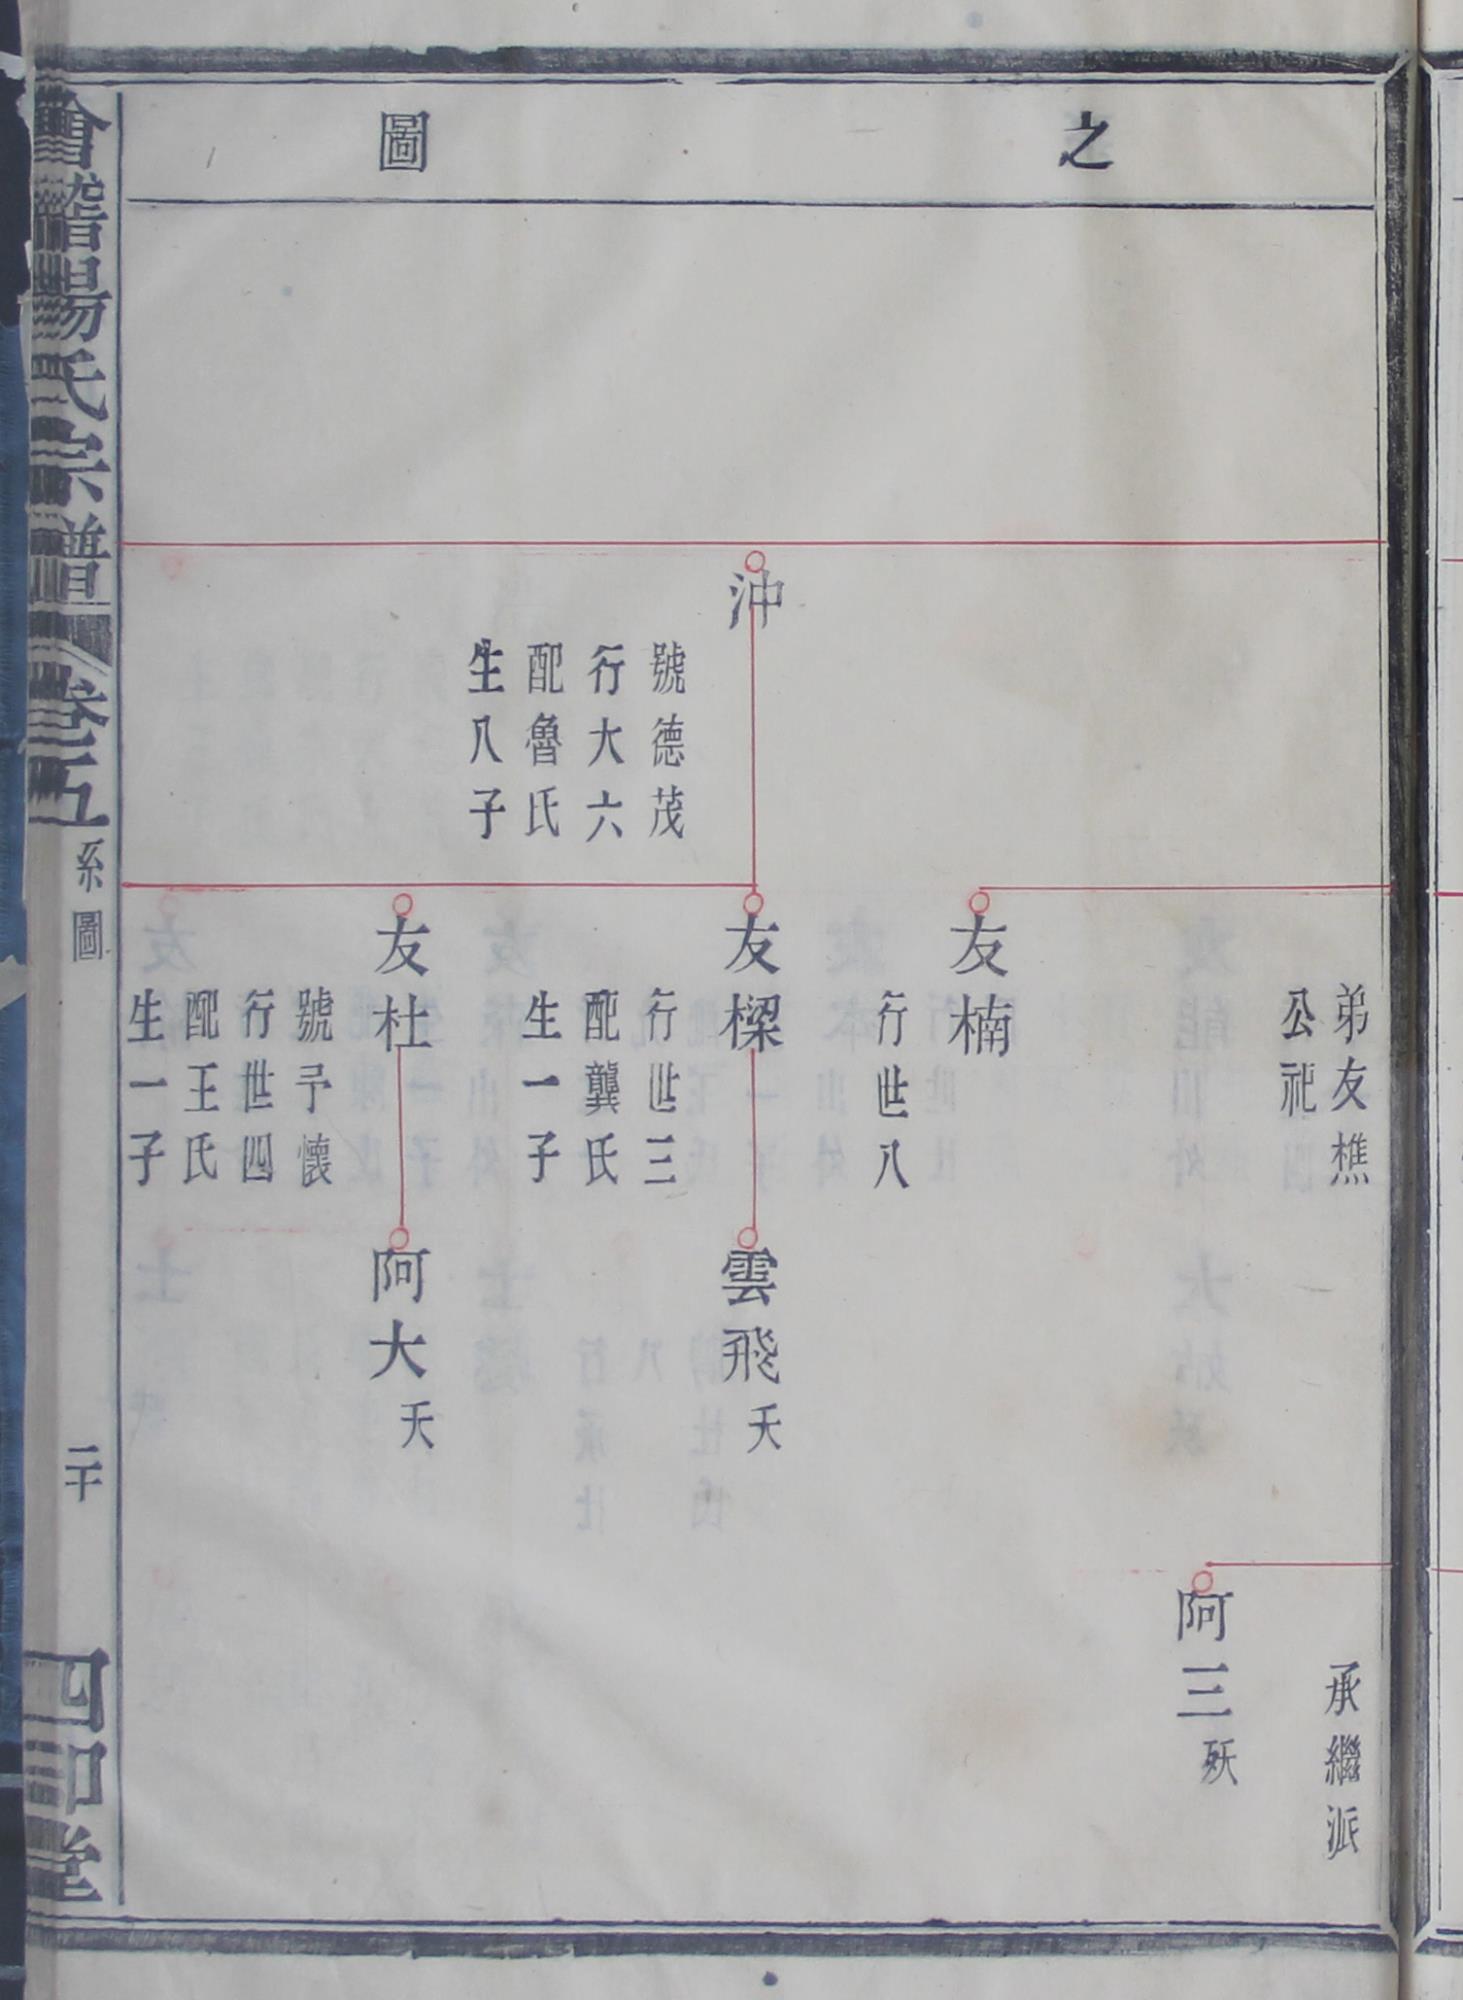 之圖
弟友樵
公祀
承繼派
阿三
殀
友楠
行世八
沖
號德茂
行大六
配魯氏
生八子
友樑
行世三
配龔氏
生一子
雲飛
夭
友杜
號予懷
行世四
配王氏
生一子
阿大
夭
會稽楊氏宗譜
卷五
系圖
二十
四知堂